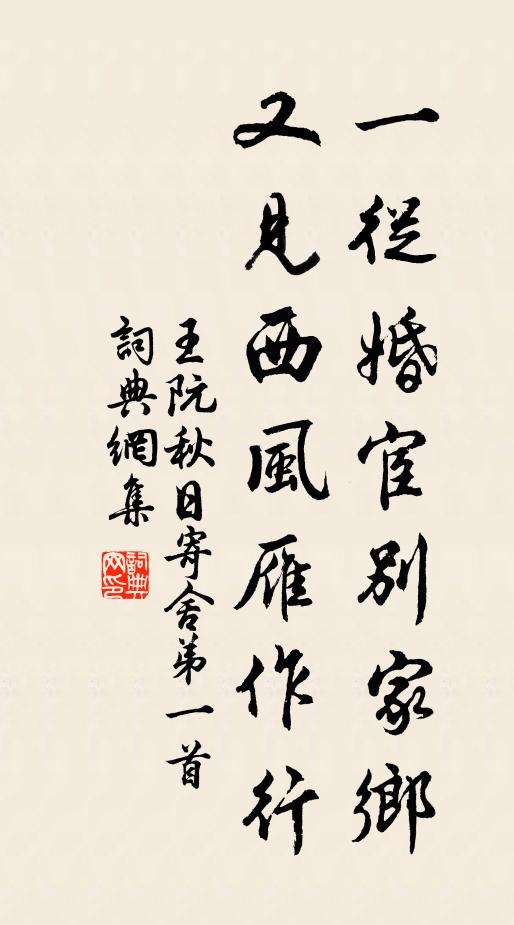 一從婚宦別家鄉
又見西風雁作行
王阮秋日寄舍弟一首
詞典網集
詞典
網印